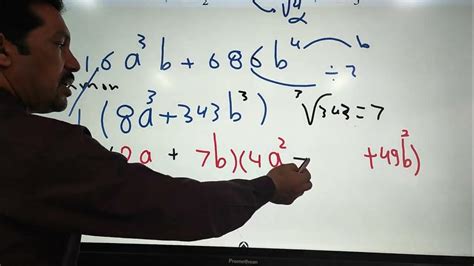 √4
16a³b + 686b⁴ b
÷ 2
mmon
(8a³+343b³) ³√343 = 7
2a + 7b)(4a² - +49b²)
Promethean